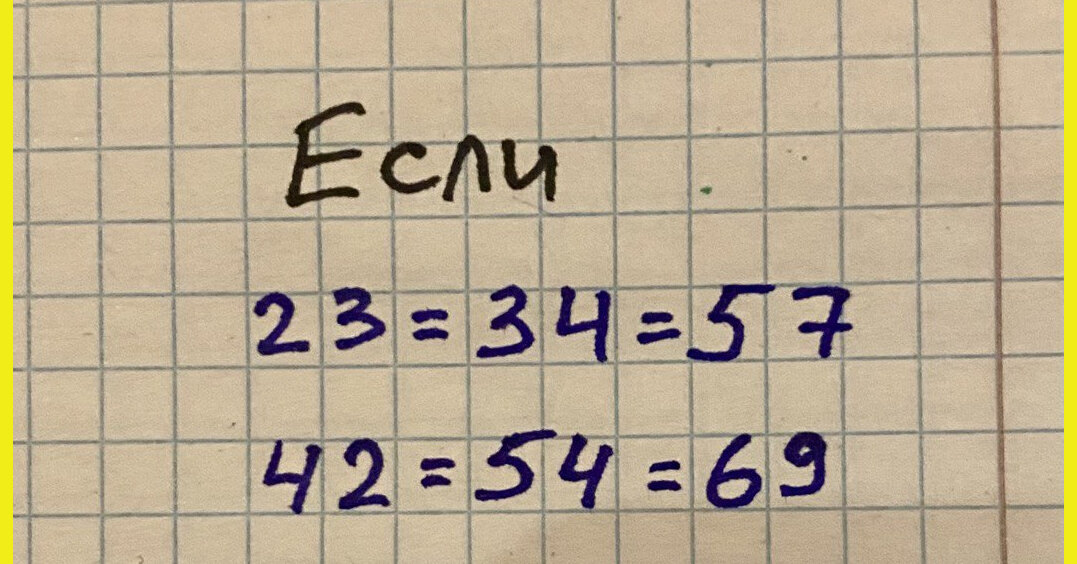 Если
23=34=57
42=54=69